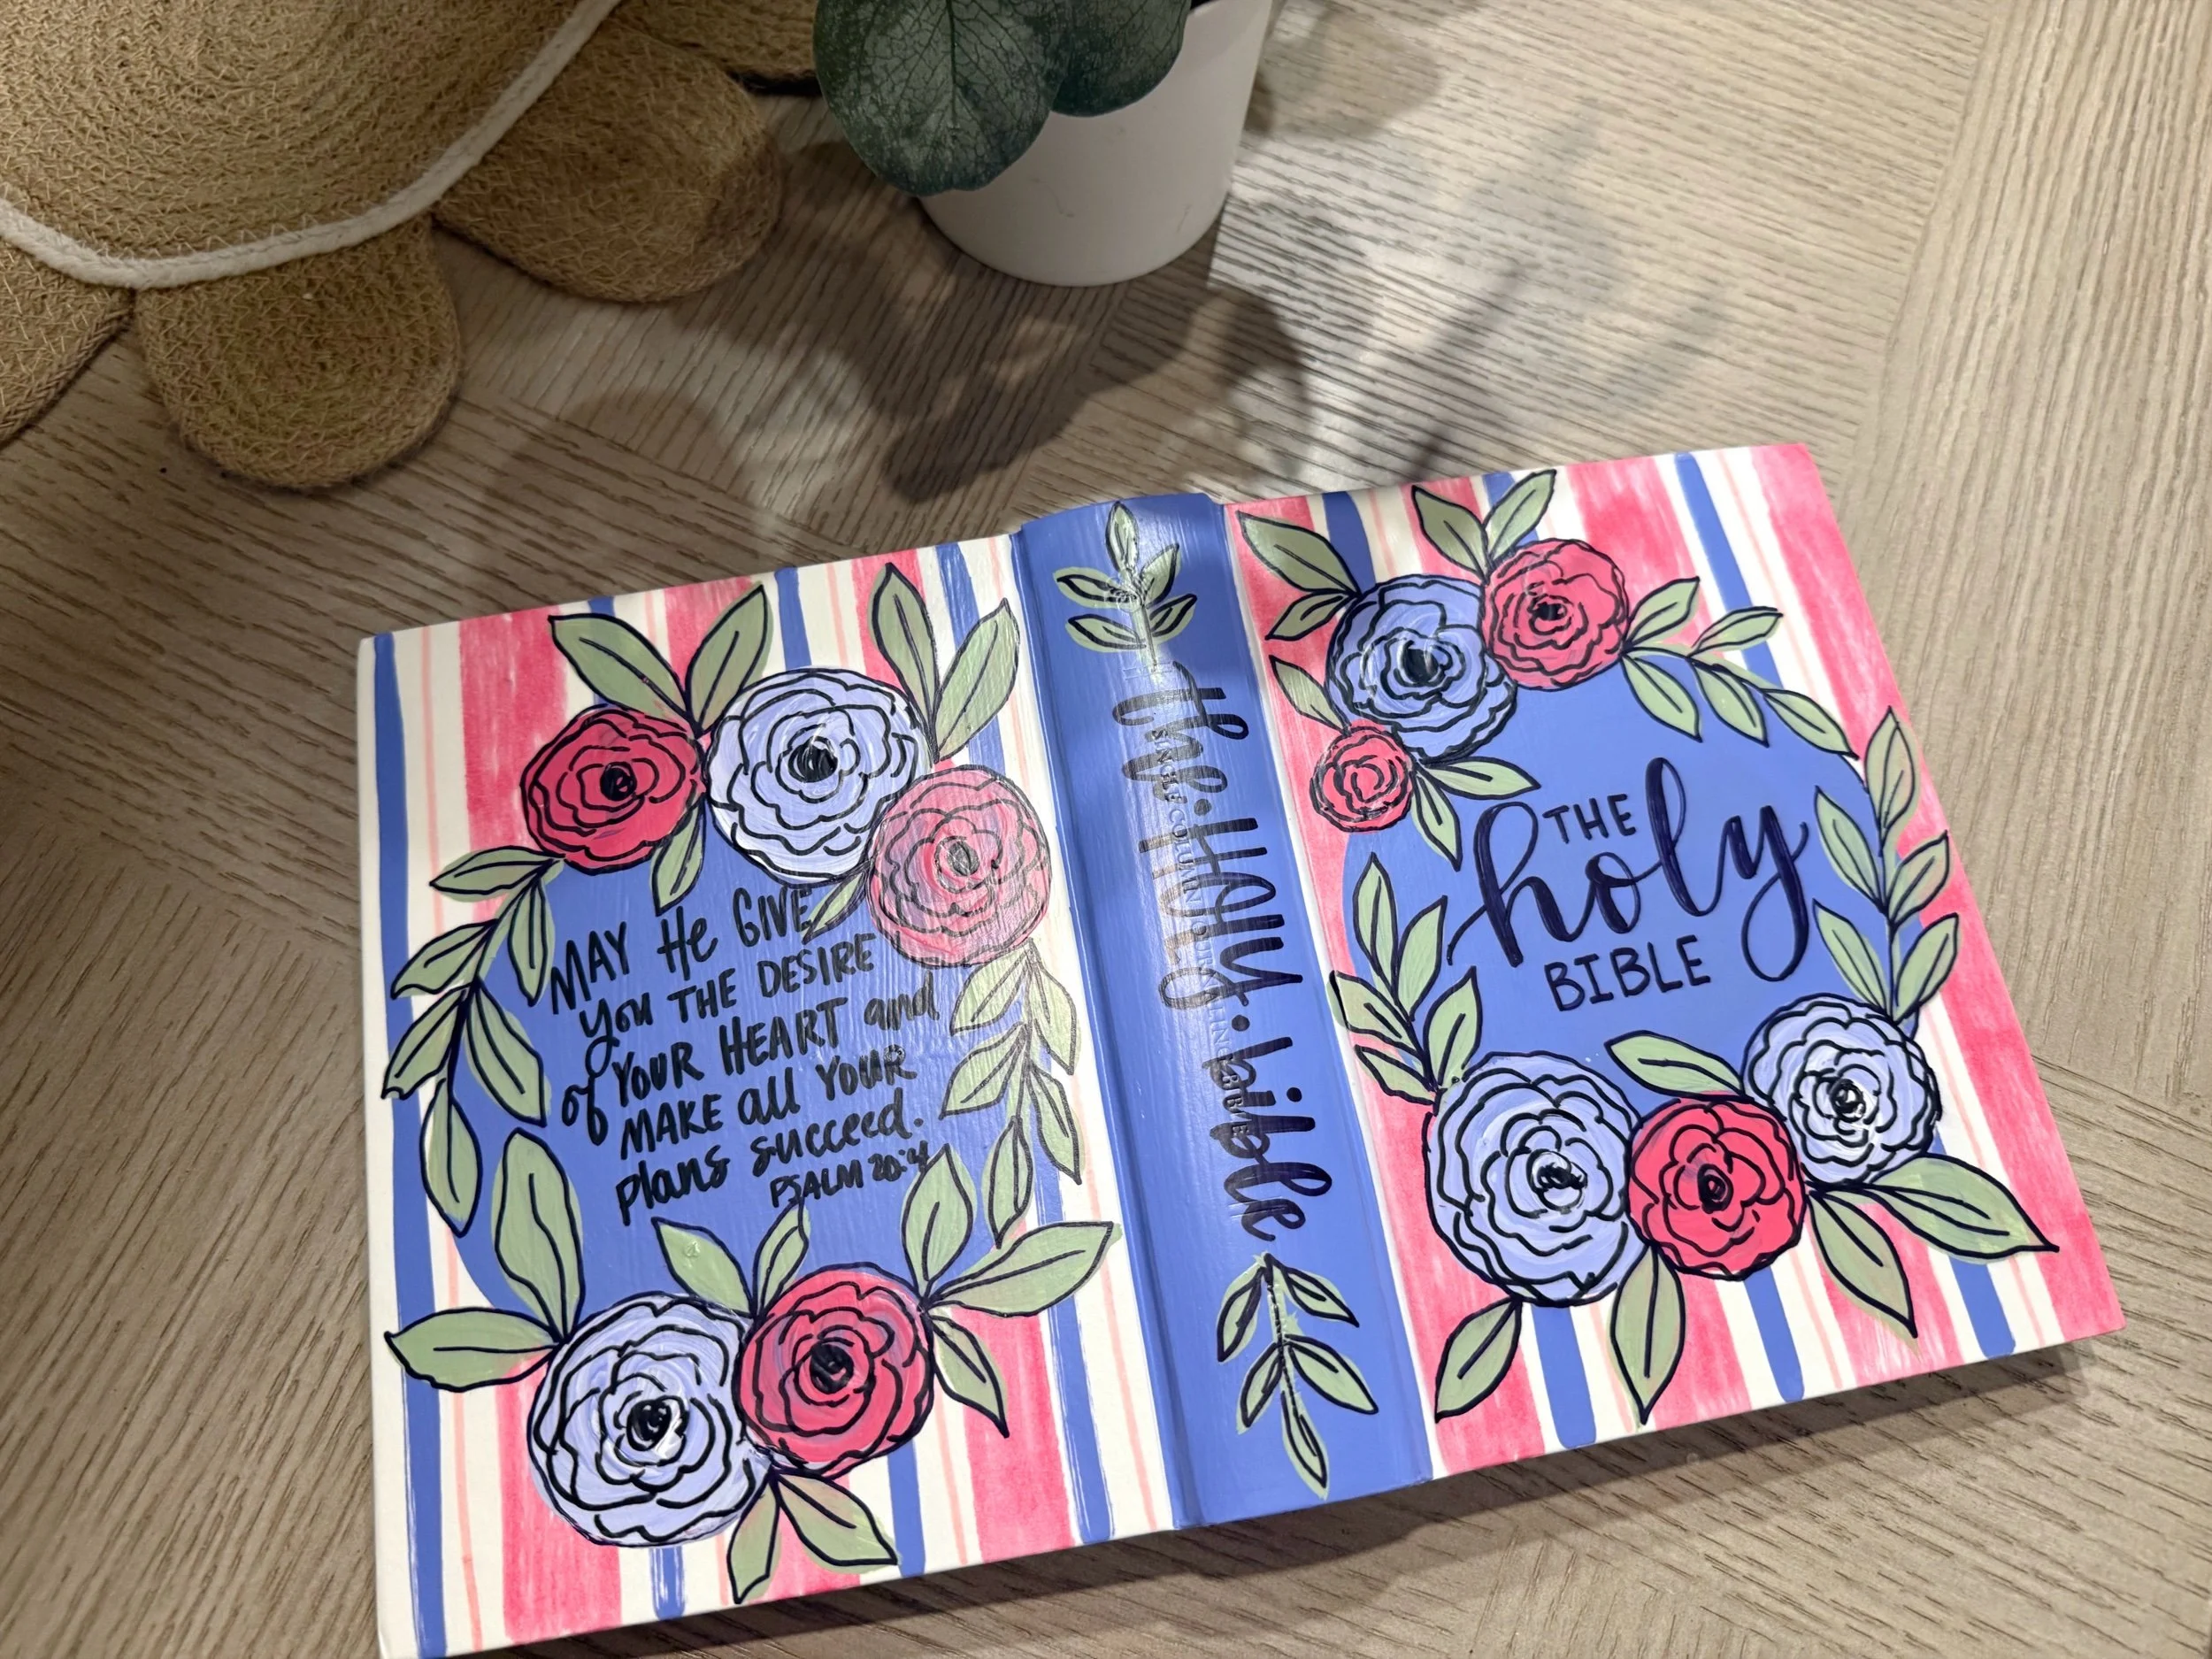 MAY He GIVE
you THE DESIRE
of YOUR HEART and
MAKE all YOUR
plans succeed.
PSALM 20:4
the·HOLY·bible
THE
holy
BIBLE